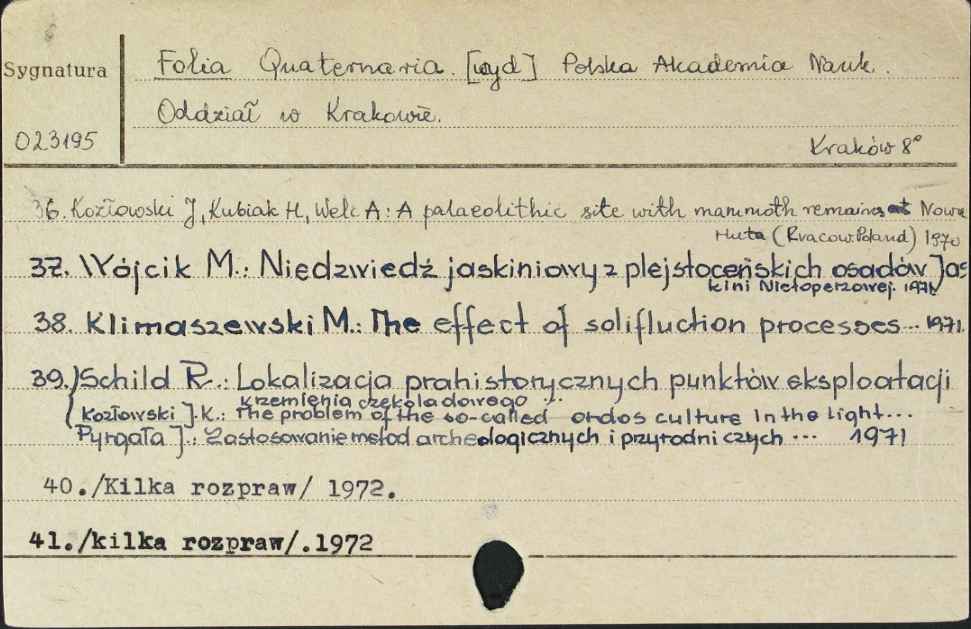 Sygnatura
023195
Folia Quaternaria. [wyd] Polska Akademia Nauk.
Oddział w Krakowie.
Kraków 8°
36. Kozłowski J, Kubiak H, Welc A: A palaeolithic site with mammoth remains at Nowa
Huta (Kracow. Poland) 1970
37. Wójcik M.: Niedzwiedź jaskiniowy z plejstoceńskich osadów Jas
kini Nietoperzowej. 1971
38. Klimaszewski M.: The effect of solifluction processes... 1971.
39.) Schild R.: Lokalizacja prahistorycznych punktów eksploatacji
krzemienia czekoladowego ...
Kozłowski J. K.: The problem of the so-called ordos culture in the light...
Pyrgała J.: Zastosowanie metod archeologicznych i przyrodniczych ... 1971
40./Kilka rozpraw/ 1972.
41./kilka rozpraw/.1972